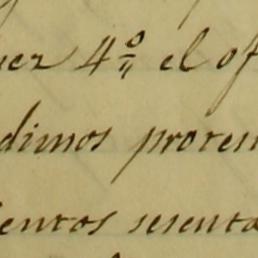 uez 4º el of
dimos proven
ientos sesenta